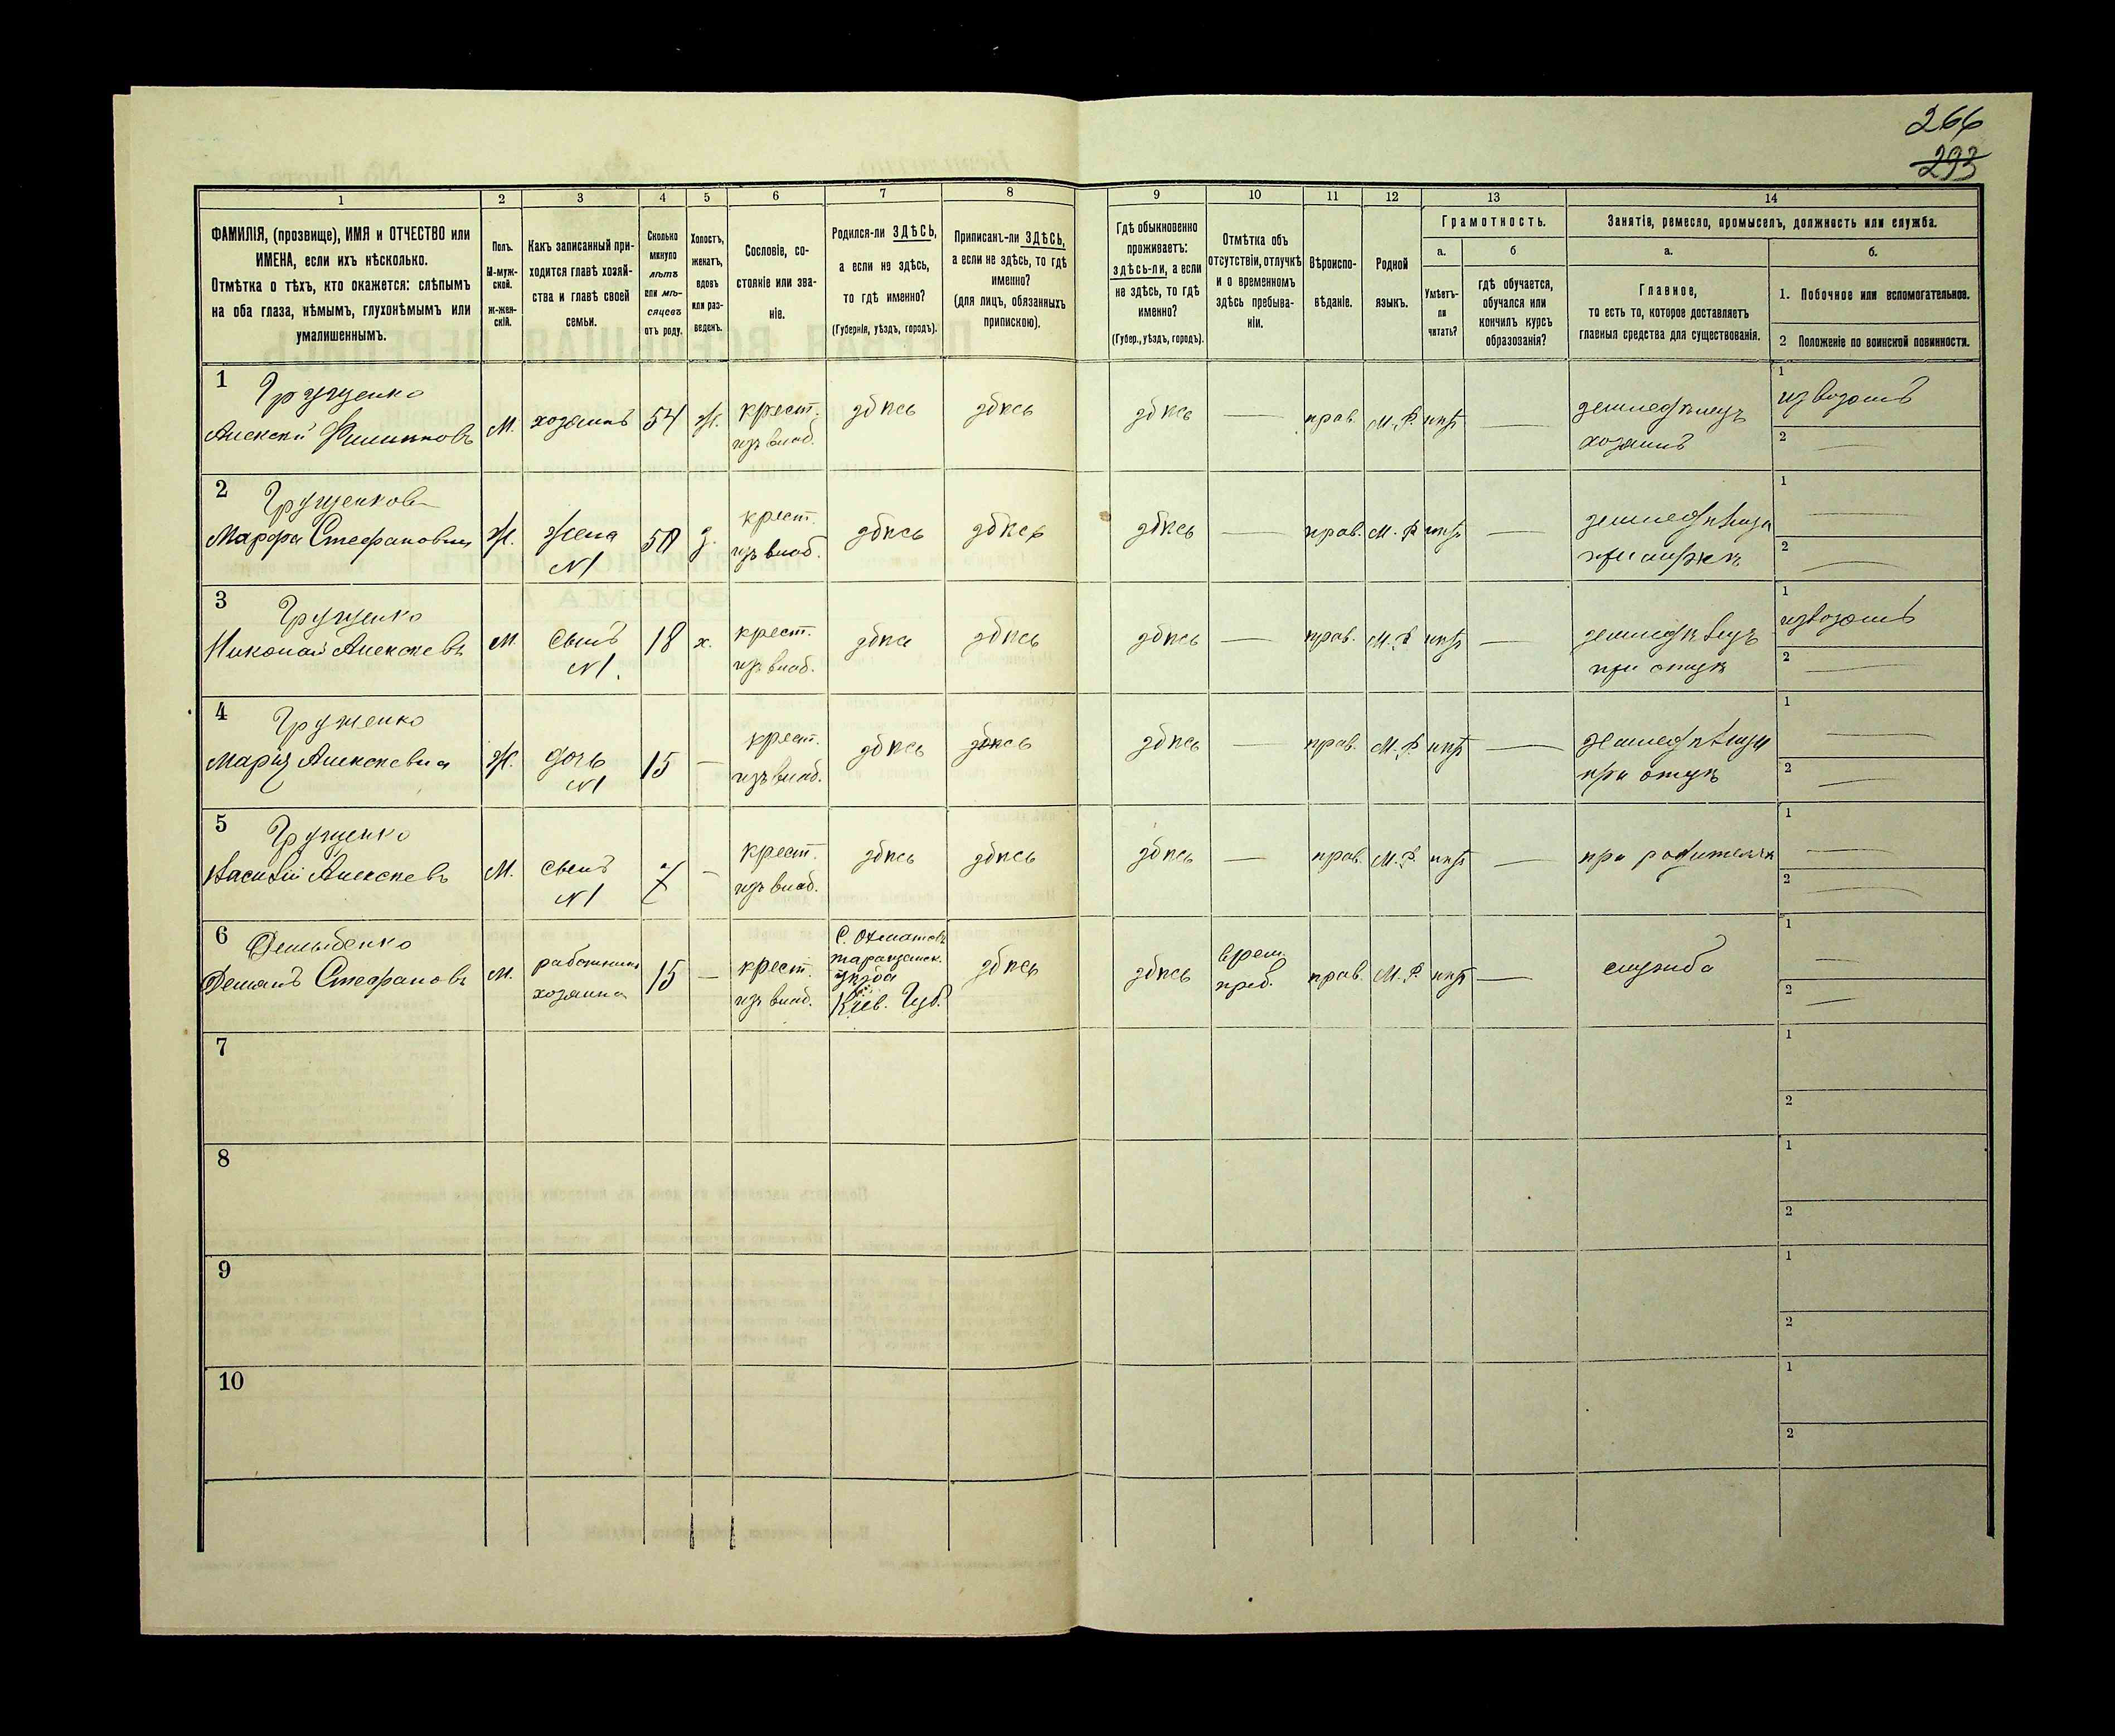 266
293
1
2
3
4
5
6
7
8
9
10
11
12
13
14
ФАМИЛІЯ, (прозвище), ИМЯ и ОТЧЕСТВО или
ИМЕНА, если ихъ нѣсколько.
Отмѣтка о тѣхъ, кто окажется: слѣпымъ
на оба глаза, нѣмымъ, глухонѣмымъ или
умалишеннымъ.
Полъ.
М-муж-
ской.
Ж-жен-
скій.
Какъ записанный при-
ходится главѣ хозяй-
ства и главѣ своей
семьи.
Сколько
минуло
лѣтъ
или мѣ-
сяцевъ
отъ роду.
Холостъ,
женатъ,
вдовъ
или раз-
веденъ.
Сословіе, со-
стояніе или зва-
ніе.
Родился-ли ЗДѢСЬ,
а если не здѣсь,
то гдѣ именно?
(Губернія, уѣздъ, городъ).
Приписанъ-ли ЗДѢСЬ,
а если не здѣсь, то гдѣ
именно?
(для лицъ, обязанныхъ
припискою).
Гдѣ обыкновенно
проживаетъ:
здѣсь-ли, а если
не здѣсь, то гдѣ
именно?
(Губер., уѣздъ, городъ).
Отмѣтка объ
отсутствіи, отлучкѣ
и о временномъ
здѣсь пребыва-
ніи.
Вѣроиспо-
вѣданіе.
Родной
языкъ.
Грамотность.
а.
Умѣетъ-
ли
читать?
б
гдѣ обучается,
обучался или
кончилъ курсъ
образованія?
Занятіе, ремесло, промыселъ, должность или служба.
а.
Главное,
то есть то, которое доставляетъ
главныя средства для существованія.
б.
1. Побочное или вспомогательное.
2 Положеніе по воинской повинности.
1
Грущенко
Алексѣй Филиповъ
М.
хозяинъ
54
ж.
крест.
изъ влад.
здѣсь
здѣсь
здѣсь
прав.
М. Р.
нѣтъ
земледѣлецъ
хозяинъ
1
извозомъ
2
2
Грущенкова
Марфа Стефановна
Ж.
жена
N1
50
з.
крест.
изъ влад.
здѣсь
здѣсь
здѣсь
прав.
М. Р
нѣтъ
земледѣлица
при мужѣ
1
2
3
Грущенко
Николай Алексѣевъ
М.
сынъ
N1.
18
х.
крест.
изъ влад.
здѣсь
здѣсь
здѣсь
прав.
М. Р
нѣтъ
земледѣлецъ
при отцѣ
1
извозомъ
2
4
Грущенко
Марія Алексѣевна
Ж.
дочь
N1
15
крест.
изъ влад.
здѣсь
здѣсь
здѣсь
прав.
М. Р
нѣтъ
земледѣлица
при отцѣ
1
2
5
Грущенко
Василій Алексѣевъ
М.
сынъ
N1
7
крест.
изъ влад.
здѣсь
здѣсь
здѣсь
прав.
М. Р.
нѣтъ
при родителяхъ
1
2
6
Демьян Стефановъ
М.
работникъ
хозяина
15
крест.
изъ влад.
С. Охматовъ
таращанск.
уѣзда
Кіев. Губ.
здѣсь
здѣсь
врем.
преб.
прав.
М. Р.
нѣтъ
служба
1
2
7
1
2
8
1
2
9
1
2
10
1
2